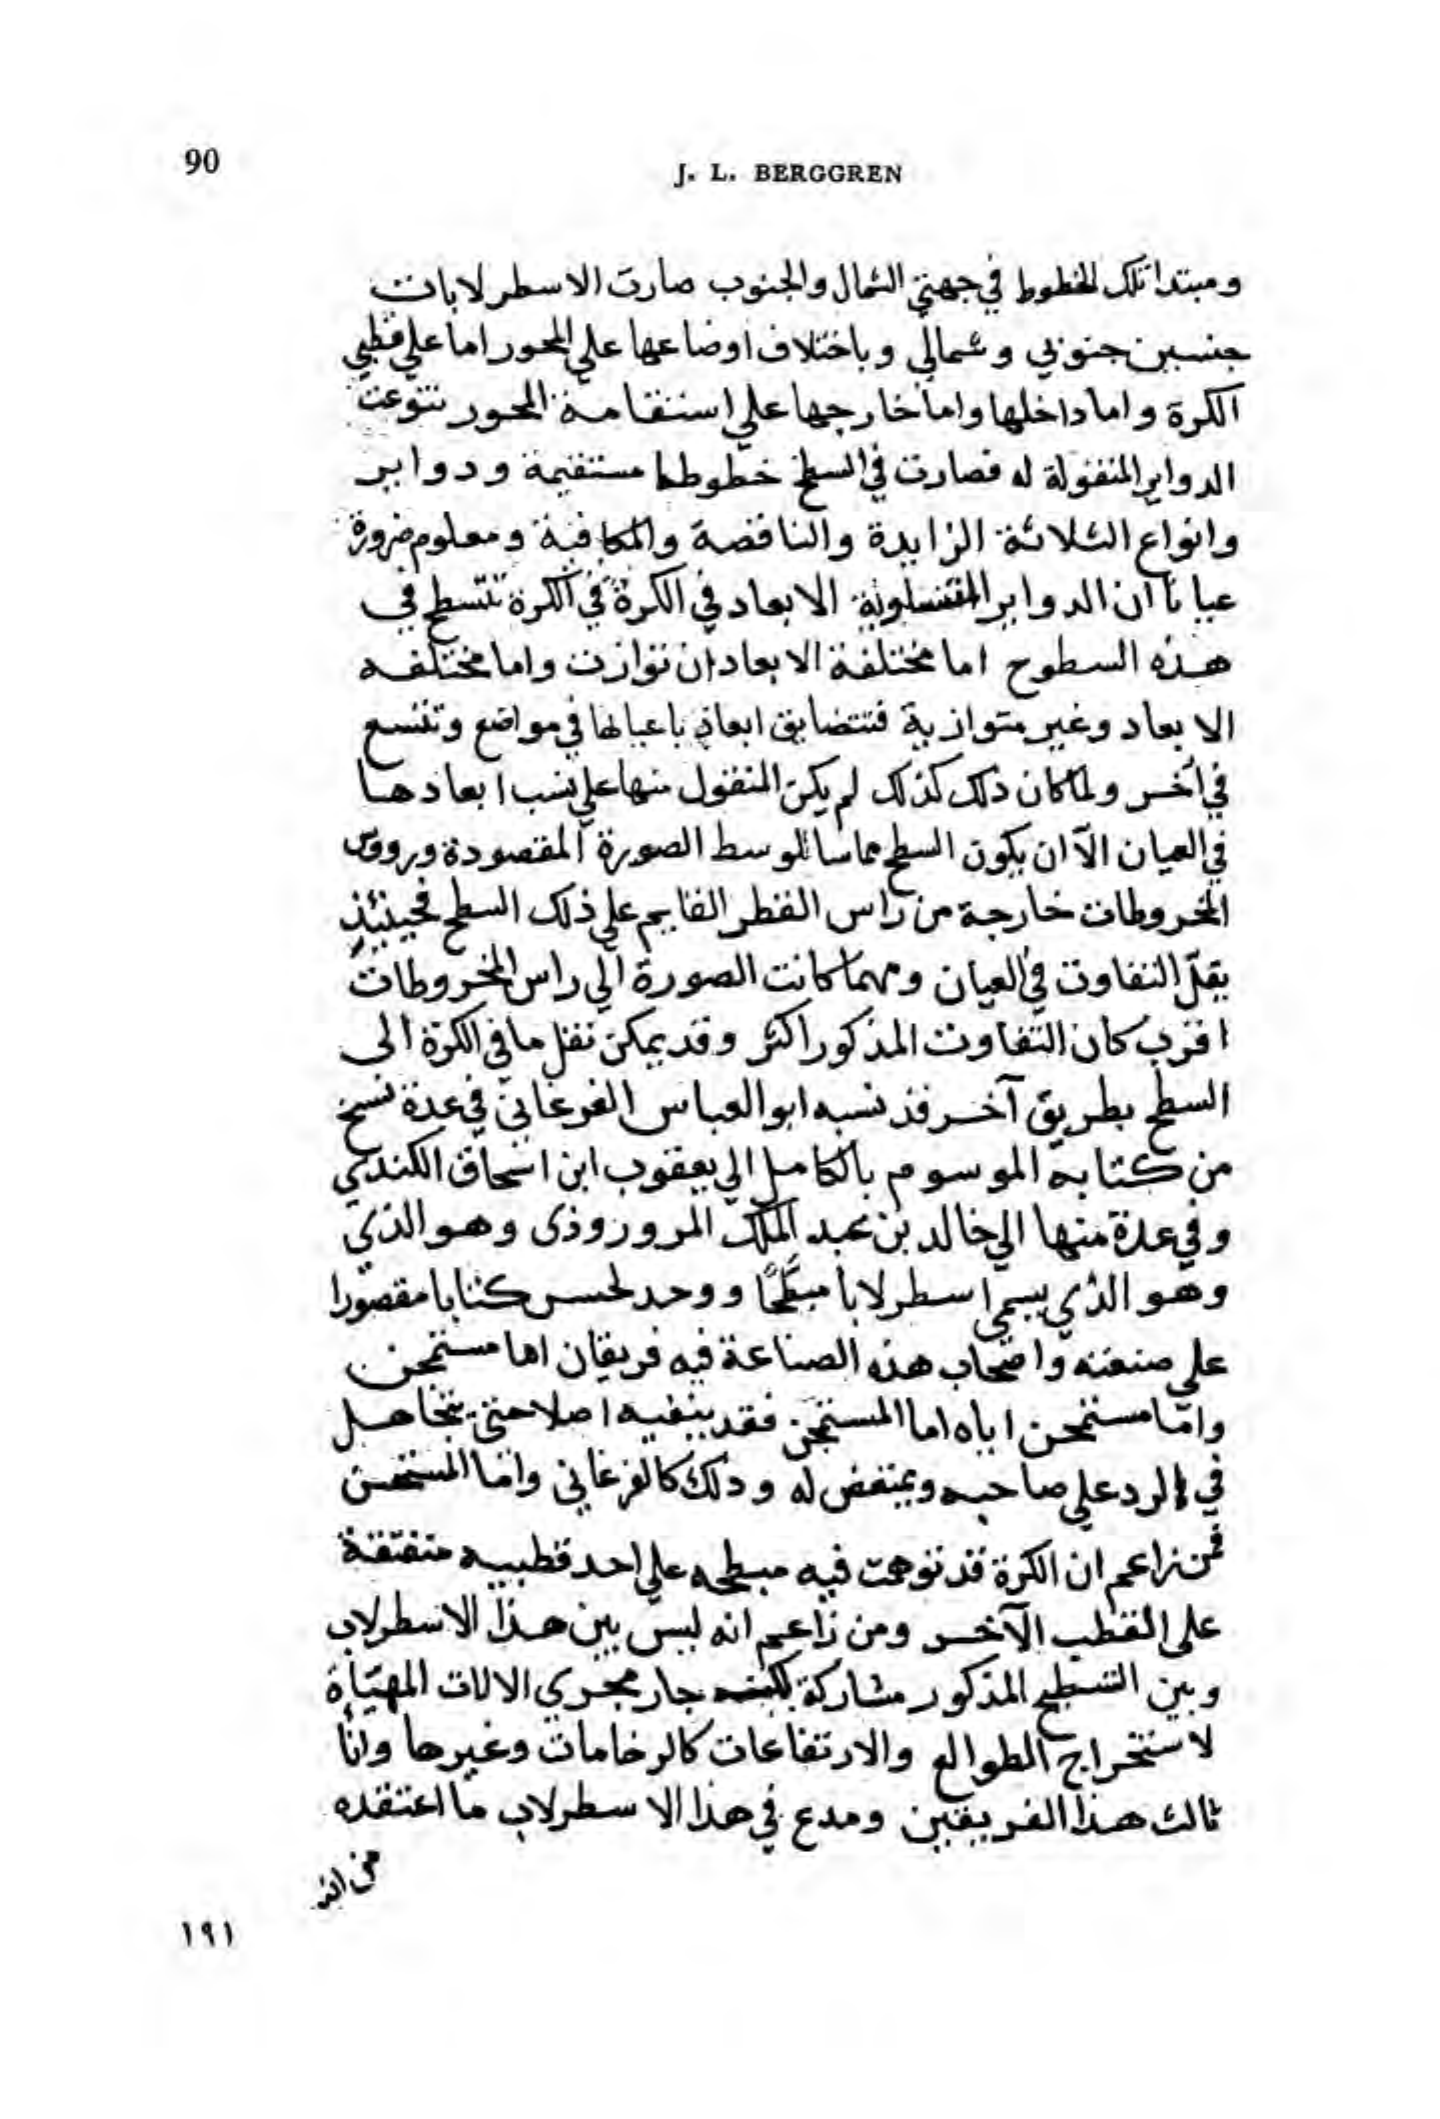 90
J. L. BERGGREN
ومبتدا تلك الخطوط في جهتي الشمال والجنوب صارت الاسطرلابات
جنسين جنوبي وشمالي وباختلاف اوضاعها علي المحور اما علي قطبي
الكرة واما داخلها واما خارجها علي استقامة المحور تنوعت
الدواير المنقولة له فصارت في السطح خطوطا مستقيمة ودواير
وانواع الثلاثة الزايدة والناقصة والمكافية ومعلوم ضرورة
عيانا ان الدواير المتساوية الابعاد في الكرة في الكرة تتسطح في
هذه السطوح اما مختلفة الابعاد ان توازت واما مختلفه
الابعاد وغير متوازية فتتضايق ابعاد باعيانها في مواضع وتتسع
في آخر ولما كان ذلك كذلك لم يكن المنقول منها علي نسب ابعادها
في العيان الّا ان يكون السطح مماسا لوسط الصورة المقصودة ورووس
المخروطات خارجة من راس القطر القايم علي ذلك السطح فحينيئذٍ
يقلّ التفاوت في العيان ومهما كانت الصورة الي راس المخروطات
اقرب كان التفاوت المذكور اكثر وقد يمكن نقل ما في الكرة الى
السطح بطريق آخر قد نسبه ابو العباس الفرغاني في عدة نسخ
من كتابه الموسوم بالكامل الي يعقوب ابن اسحاق الكندي
وفي عدة منها الي خالد بن عبد الملك المروروذى وهو الذي
وهو الذي يسمي اسطرلابا مبطّحًا ووحد لحسس كتابا مقصورا
علي صنعته واصحاب هذه الصناعة فيه فريقان اما مستهجن
وامّا مستحسن اياه اما المستهجن فقد ينفيه اصلا حتى يتجاهل
في الرد علي صاحبه ويمتعض له وذلك كالفرغاني وامّا المستحسن
فمن زاعم ان الكرة قد توهمت فيه مبطحه علي احد قطبيه متفتقة
على القطب الآخر ومن زاعم انه ليس بين هذا الاسطرلاب
وبين التسطيح المذكور مشاركة لكنه جار مجري الالات المهيّاة
لاستخراج الطوالع والارتفاعات كالرخامات وغيرها وانا
ثالث هذا الفريقين ومدع في هذا الاسطرلاب ما اعتقده
من انه
١٩١